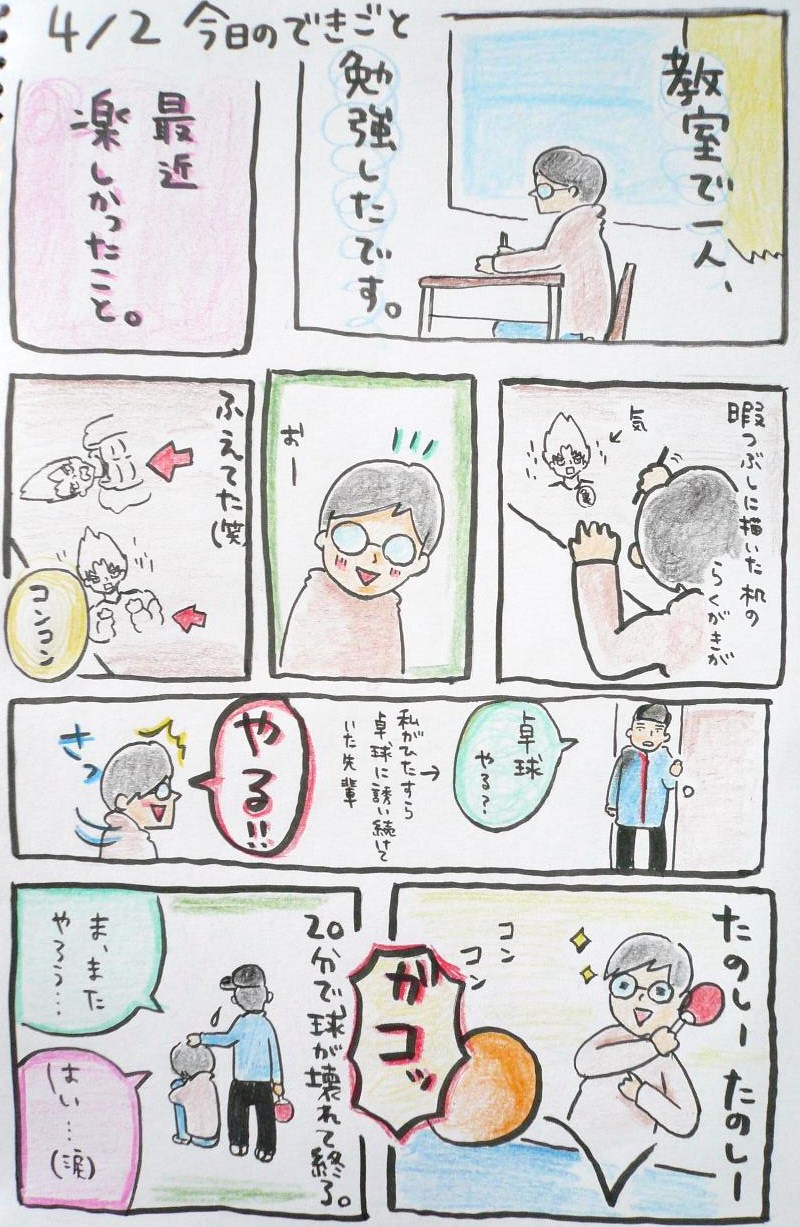 4/2 今日のできごと
教室で一人、
勉強したです。
最近
楽しかったこと。
暇つぶしに描いた机の
らくがきが
気
お
ー
ふえてた(笑)
コンコン
卓球
やる?
私がひたすら
卓球に誘い続けて
いた先輩
やる!!
さっ
たのしー たのしー
コン
コン
ガコッ
20分で球が壊れて終る。
ま、また
やろう…
はい…
(涙)